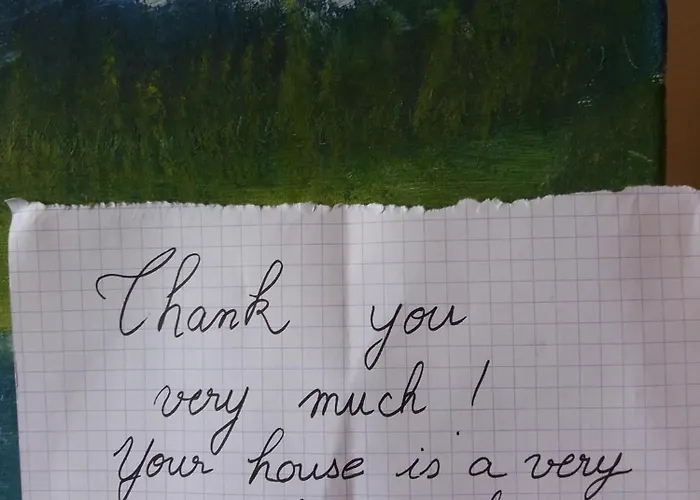 Thank you
very much !
Your house is a very